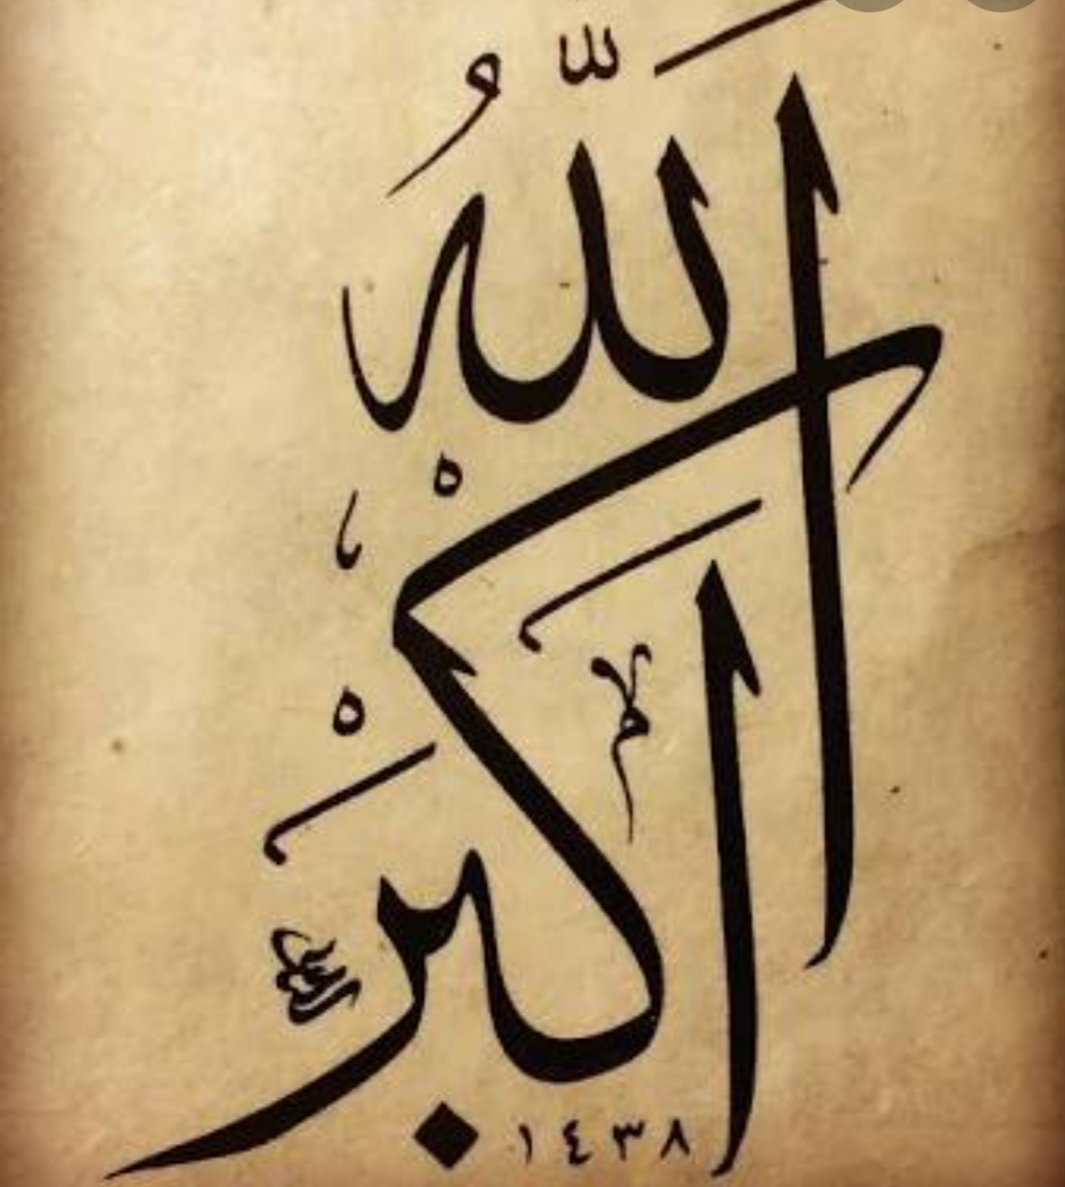 اللَّهُ
أَكْبَرْ
١٤٣٨